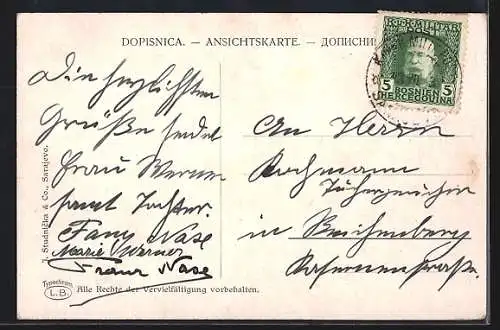 DOPISNICA. — ANSICHTSKARTE. — ДОПИСНИ
K.u.K. MILITÄR
POST
5 5
BOSNIEN
HERCEGOVINA
Die herzlichsten
Grüße sendet
Frau Werner
samt Tochter.
Fany Nase
Marie Werner
Franz Nase
An Herrn
Rochmann
in Reichenberg
J. Studnička & Co., Sarajevo.
L.B.
Alle Rechte der Vervielfältigung vorbehalten.